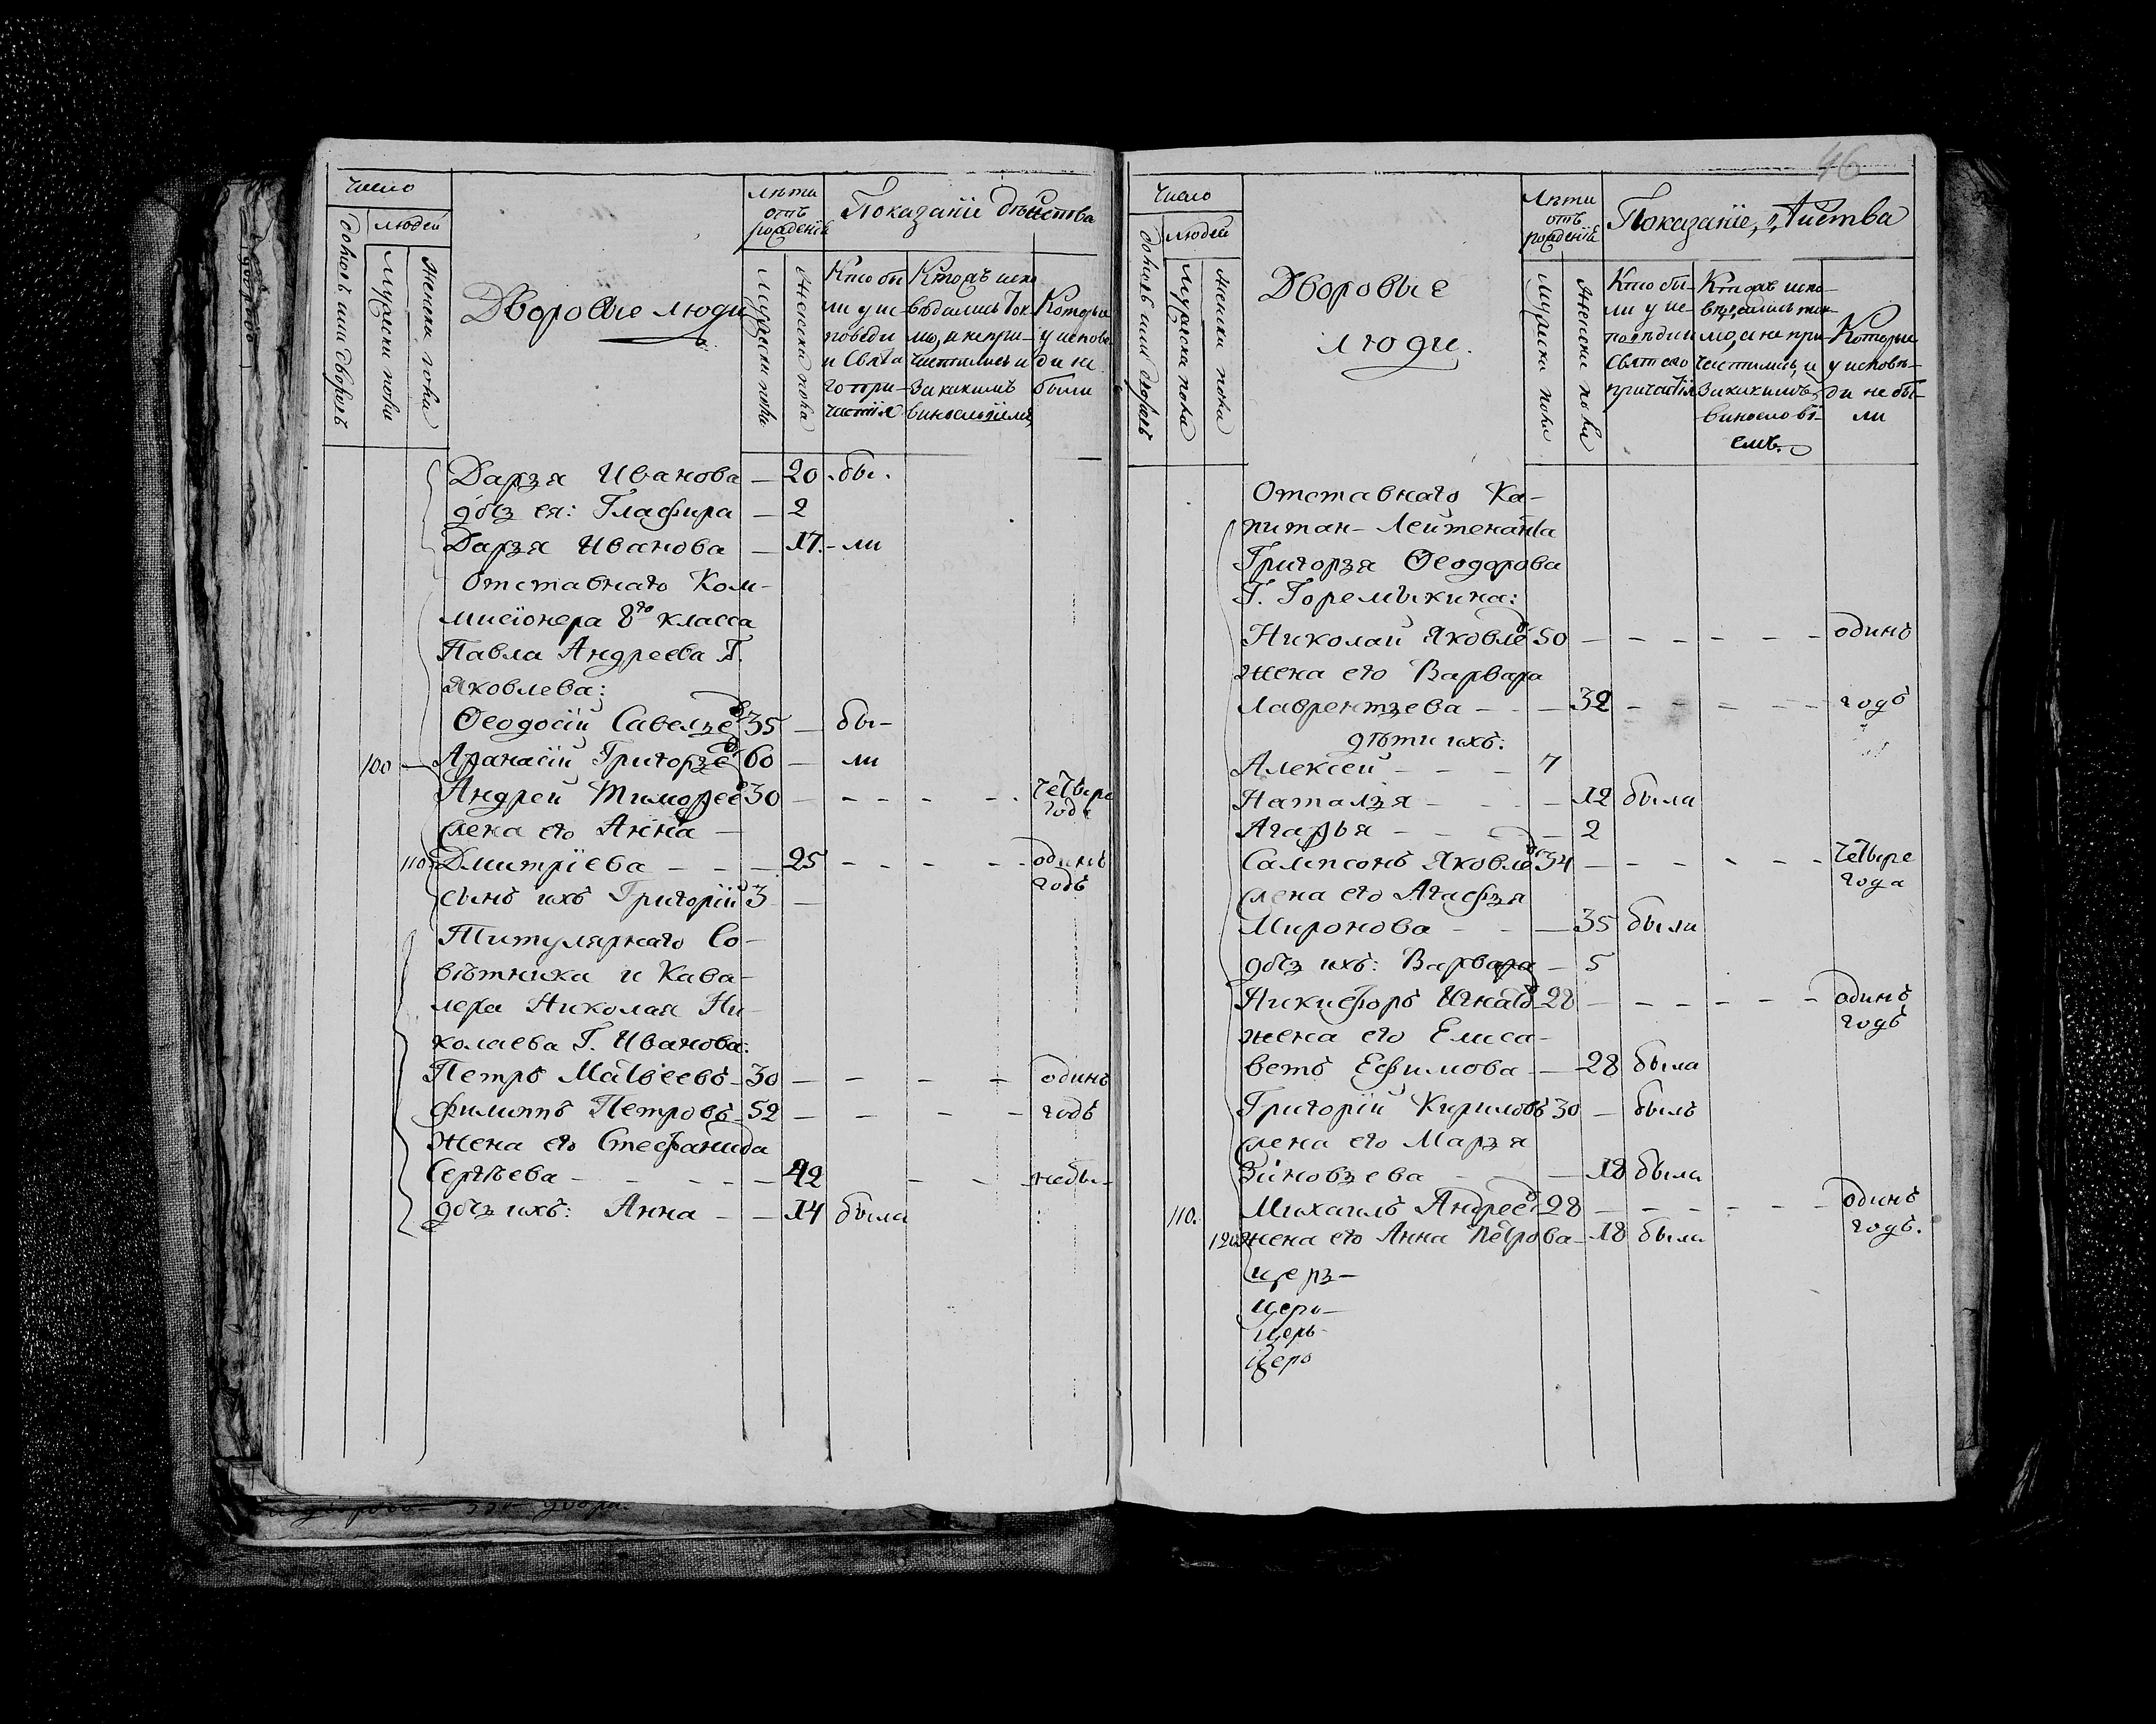 Число
домовъ или дворовъ
людей
Мужеска пола
Женска пола
Дворовые люди
Лѣта
отъ
рожденія
Мужеска пола
Женска пола
Показаніе дѣйства
Кто бы
ли у ис
повѣди
и Свята
го при-
частія
Кто жъ испо
вѣдались ток
мо, а не при-
частились и
за какимъ
винословіемъ
Которые
у исповѣ
ди не
были
Дарья Иванова — 20 бы.
дочь ея: Глафира — 2
Дарья Иванова — 17 - ли
Отставнаго Ком-
мисіонера 8го класса
Павла Андреева Г.
Яковлева:
Ѳеодосій Савельевъ 35 — бы-
100 Афанасій Григорьевъ 60 — ли
Андрей Тимофеевъ 30 — четыре
года
жена его Анна —
110 Дмитріева — 25 — одинъ
годъ
сынъ ихъ Григорій 3 —
Титулярнаго Со-
вѣтника и Кава-
лера Николая Ни-
колаева Г. Иванова:
Петръ Матвеевъ - 30 — одинъ
Филиппъ Петровъ - 52 — годъ
жена его Стефанида
Сергѣева — 42 — небы-
дочь ихъ: Анна — 14 была
46
Число
домовъ или дворовъ
людей
Мужеска пола
Женска пола
Дворовые
люди.
Лѣта
отъ
рожденія
Мужеска пола
Женска пола
Показаніе, дѣйства
Кто бы-
ли у ис-
повѣди и
Святаго
причастія
Кто жъ испо-
вѣдались ток-
мо, а не при-
частились, и
за какимъ
винослові-
емъ.
Которые
у исповѣ-
ди не бы-
ли
Отставнаго Ка-
питан-Лейтенанта
Григорья Ѳеодорова
Г. Горемыкина:
Николай Яковлевъ 50 — одинъ
жена его Варвара
Лаврентьева — 32 — годъ
дѣти ихъ:
Алексей — 7
Наталья — 12 была
Агафья — 2
Сампсонъ Яковлевъ 34 — четыре
года
жена его Агафья
Миронова — 35 была
дочь ихъ: Варвара — 5
Никифоръ Игнатовъ 28 — одинъ
годъ
жена его Елиса-
ветъ Ефимова — 28 была
Григорій Кириловъ 30 — былъ
жена его Марья
Зиновьева — 18 была
110. Михаилъ Андреевъ 28 — одинъ
годъ.
120 жена его Анна Петрова — 18 была
церь-
церь-
церь-